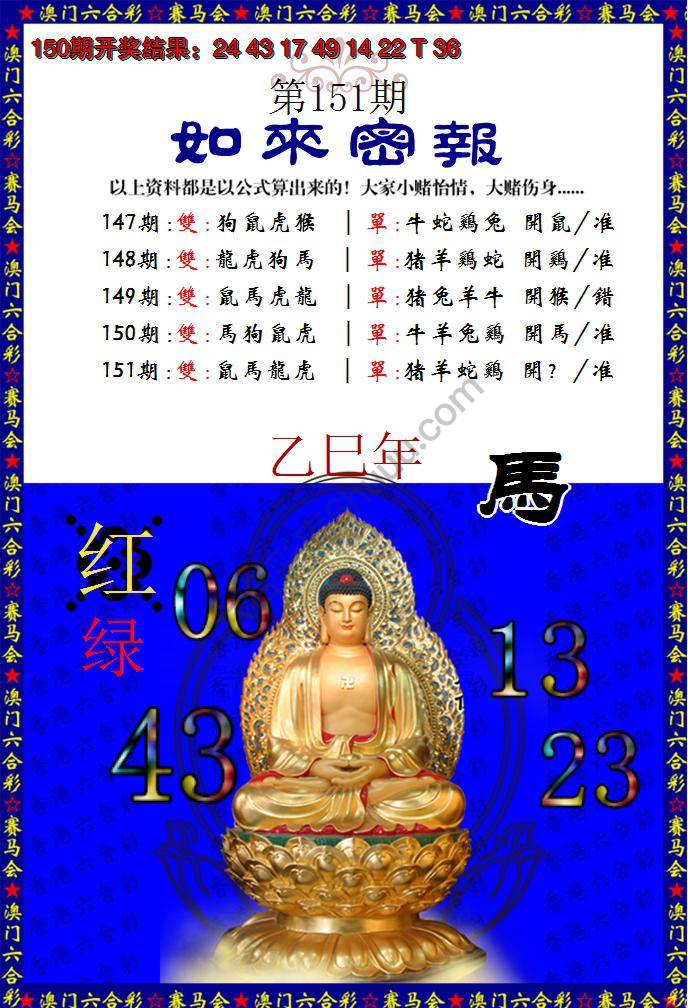 ★澳门六合彩☆赛马会★澳门六合彩☆赛马会★澳门六合彩☆赛马会★
150期开奖结果：24 43 17 49 14 22 T 36
第151期
如來密報
以上资料都是以公式算出来的！大家小赌怡情，大赌伤身......
147期：雙：狗鼠虎猴 | 單：牛蛇鷄兔 開鼠/准
148期：雙：龍虎狗馬 | 單：猪羊鷄蛇 開鷄/准
149期：雙：鼠馬虎龍 | 單：猪兔羊牛 開猴/錯
150期：雙：馬狗鼠虎 | 單：牛羊兔鷄 開馬/准
151期：雙：鼠馬龍虎 | 單：猪羊蛇鷄 開？/准
乙巳年
馬
红
绿
06
13
43
23
香港六合彩
★澳门六合彩☆赛马会★澳门六合彩☆赛马会★澳门六合彩☆赛马会★